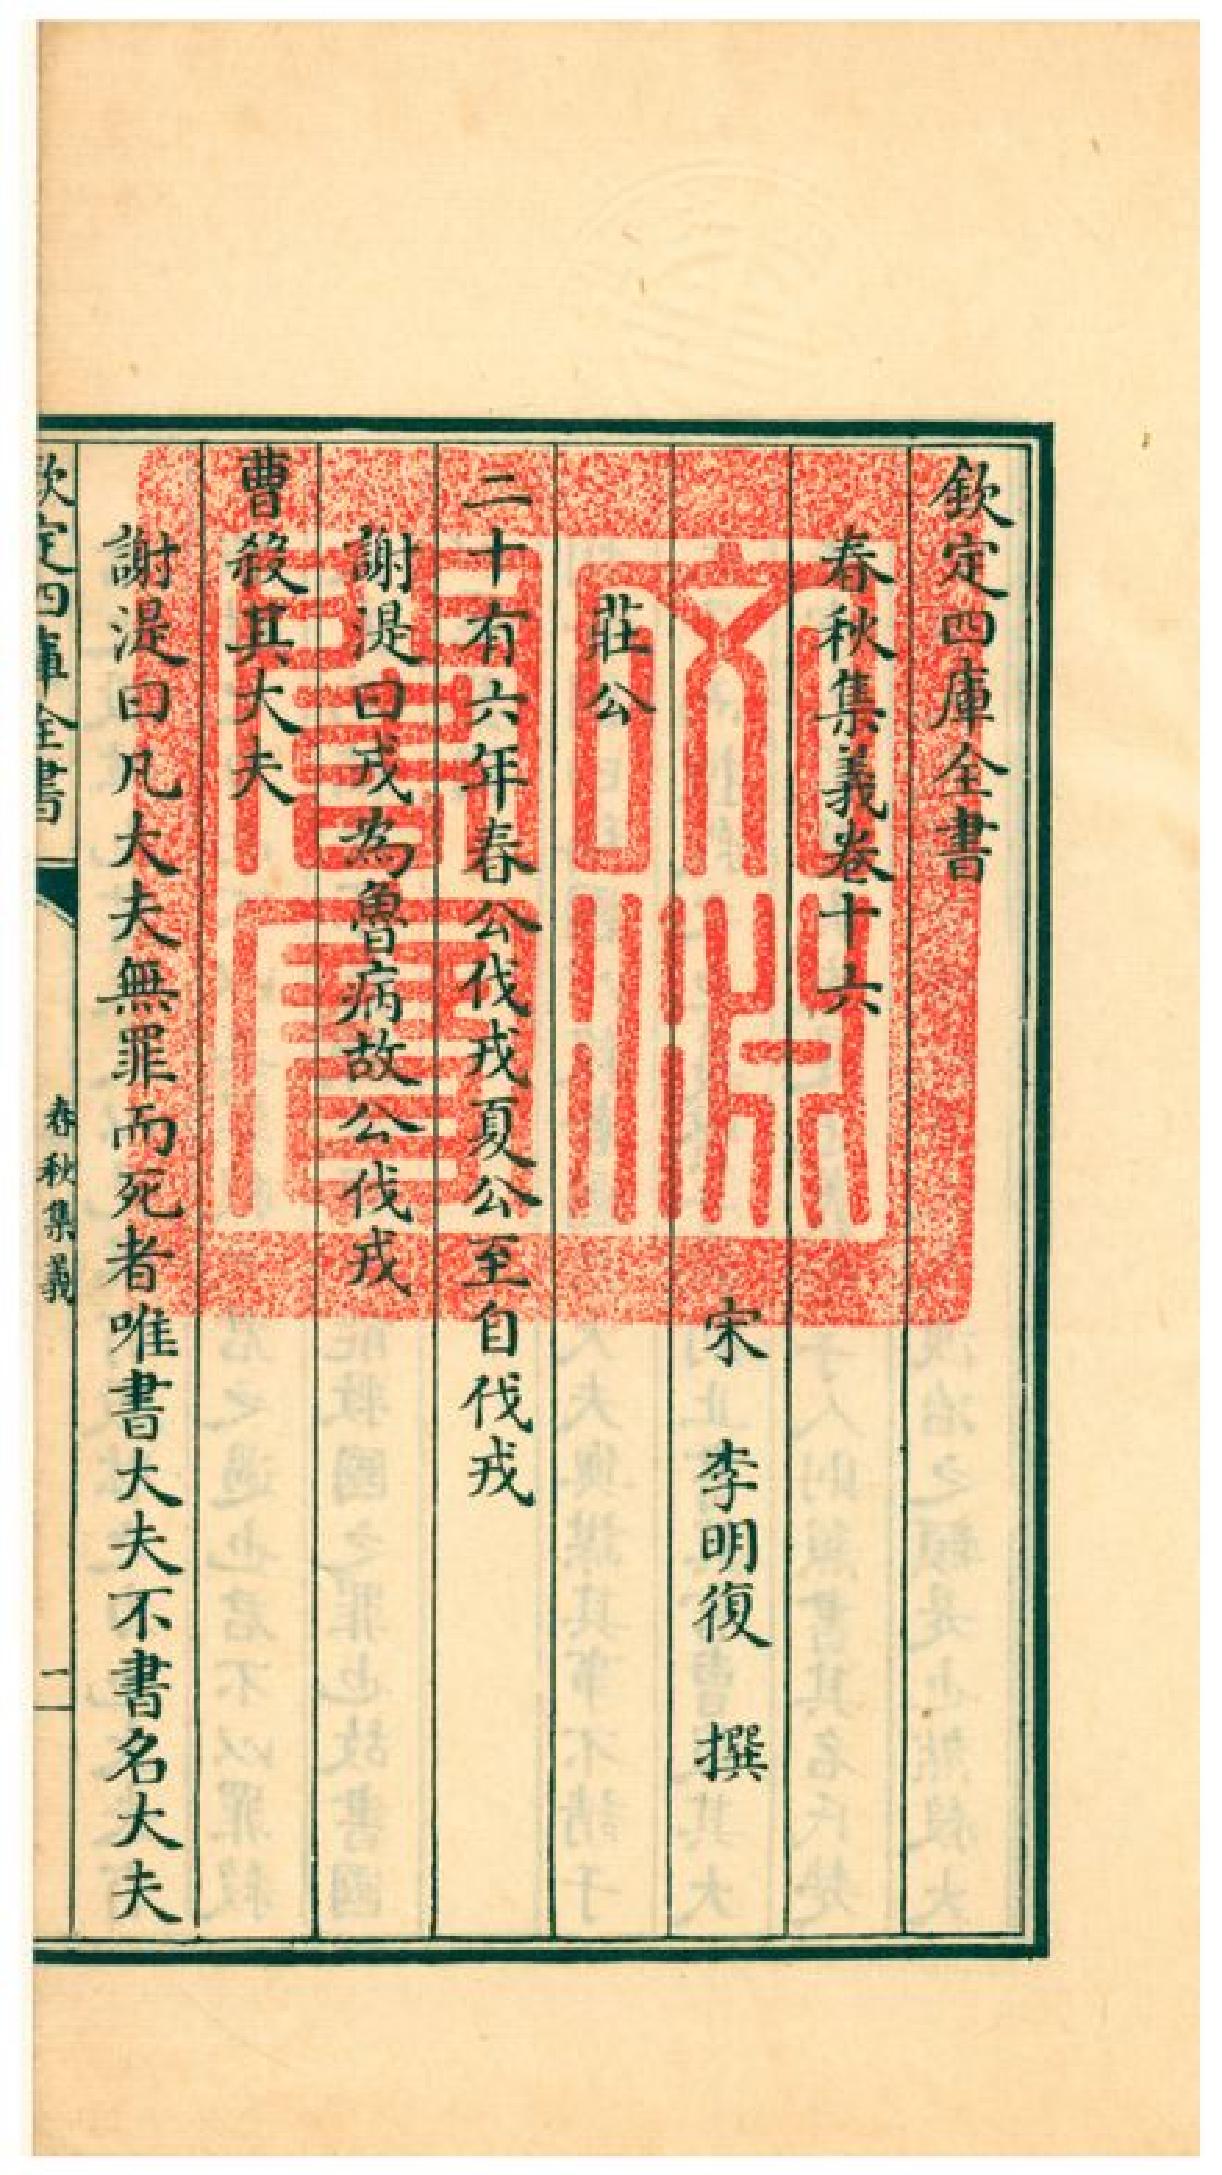 欽定四庫全書
春秋集義卷十六
宋 李明復 撰
莊公
二十有六年春公伐戎夏公至自伐戎
謝湜曰戎為魯病故公伐戎
曹殺其大夫
謝湜曰凡大夫無罪而死者唯書大夫不書名大夫
欽定四庫全書
春秋集義
文淵閣寶